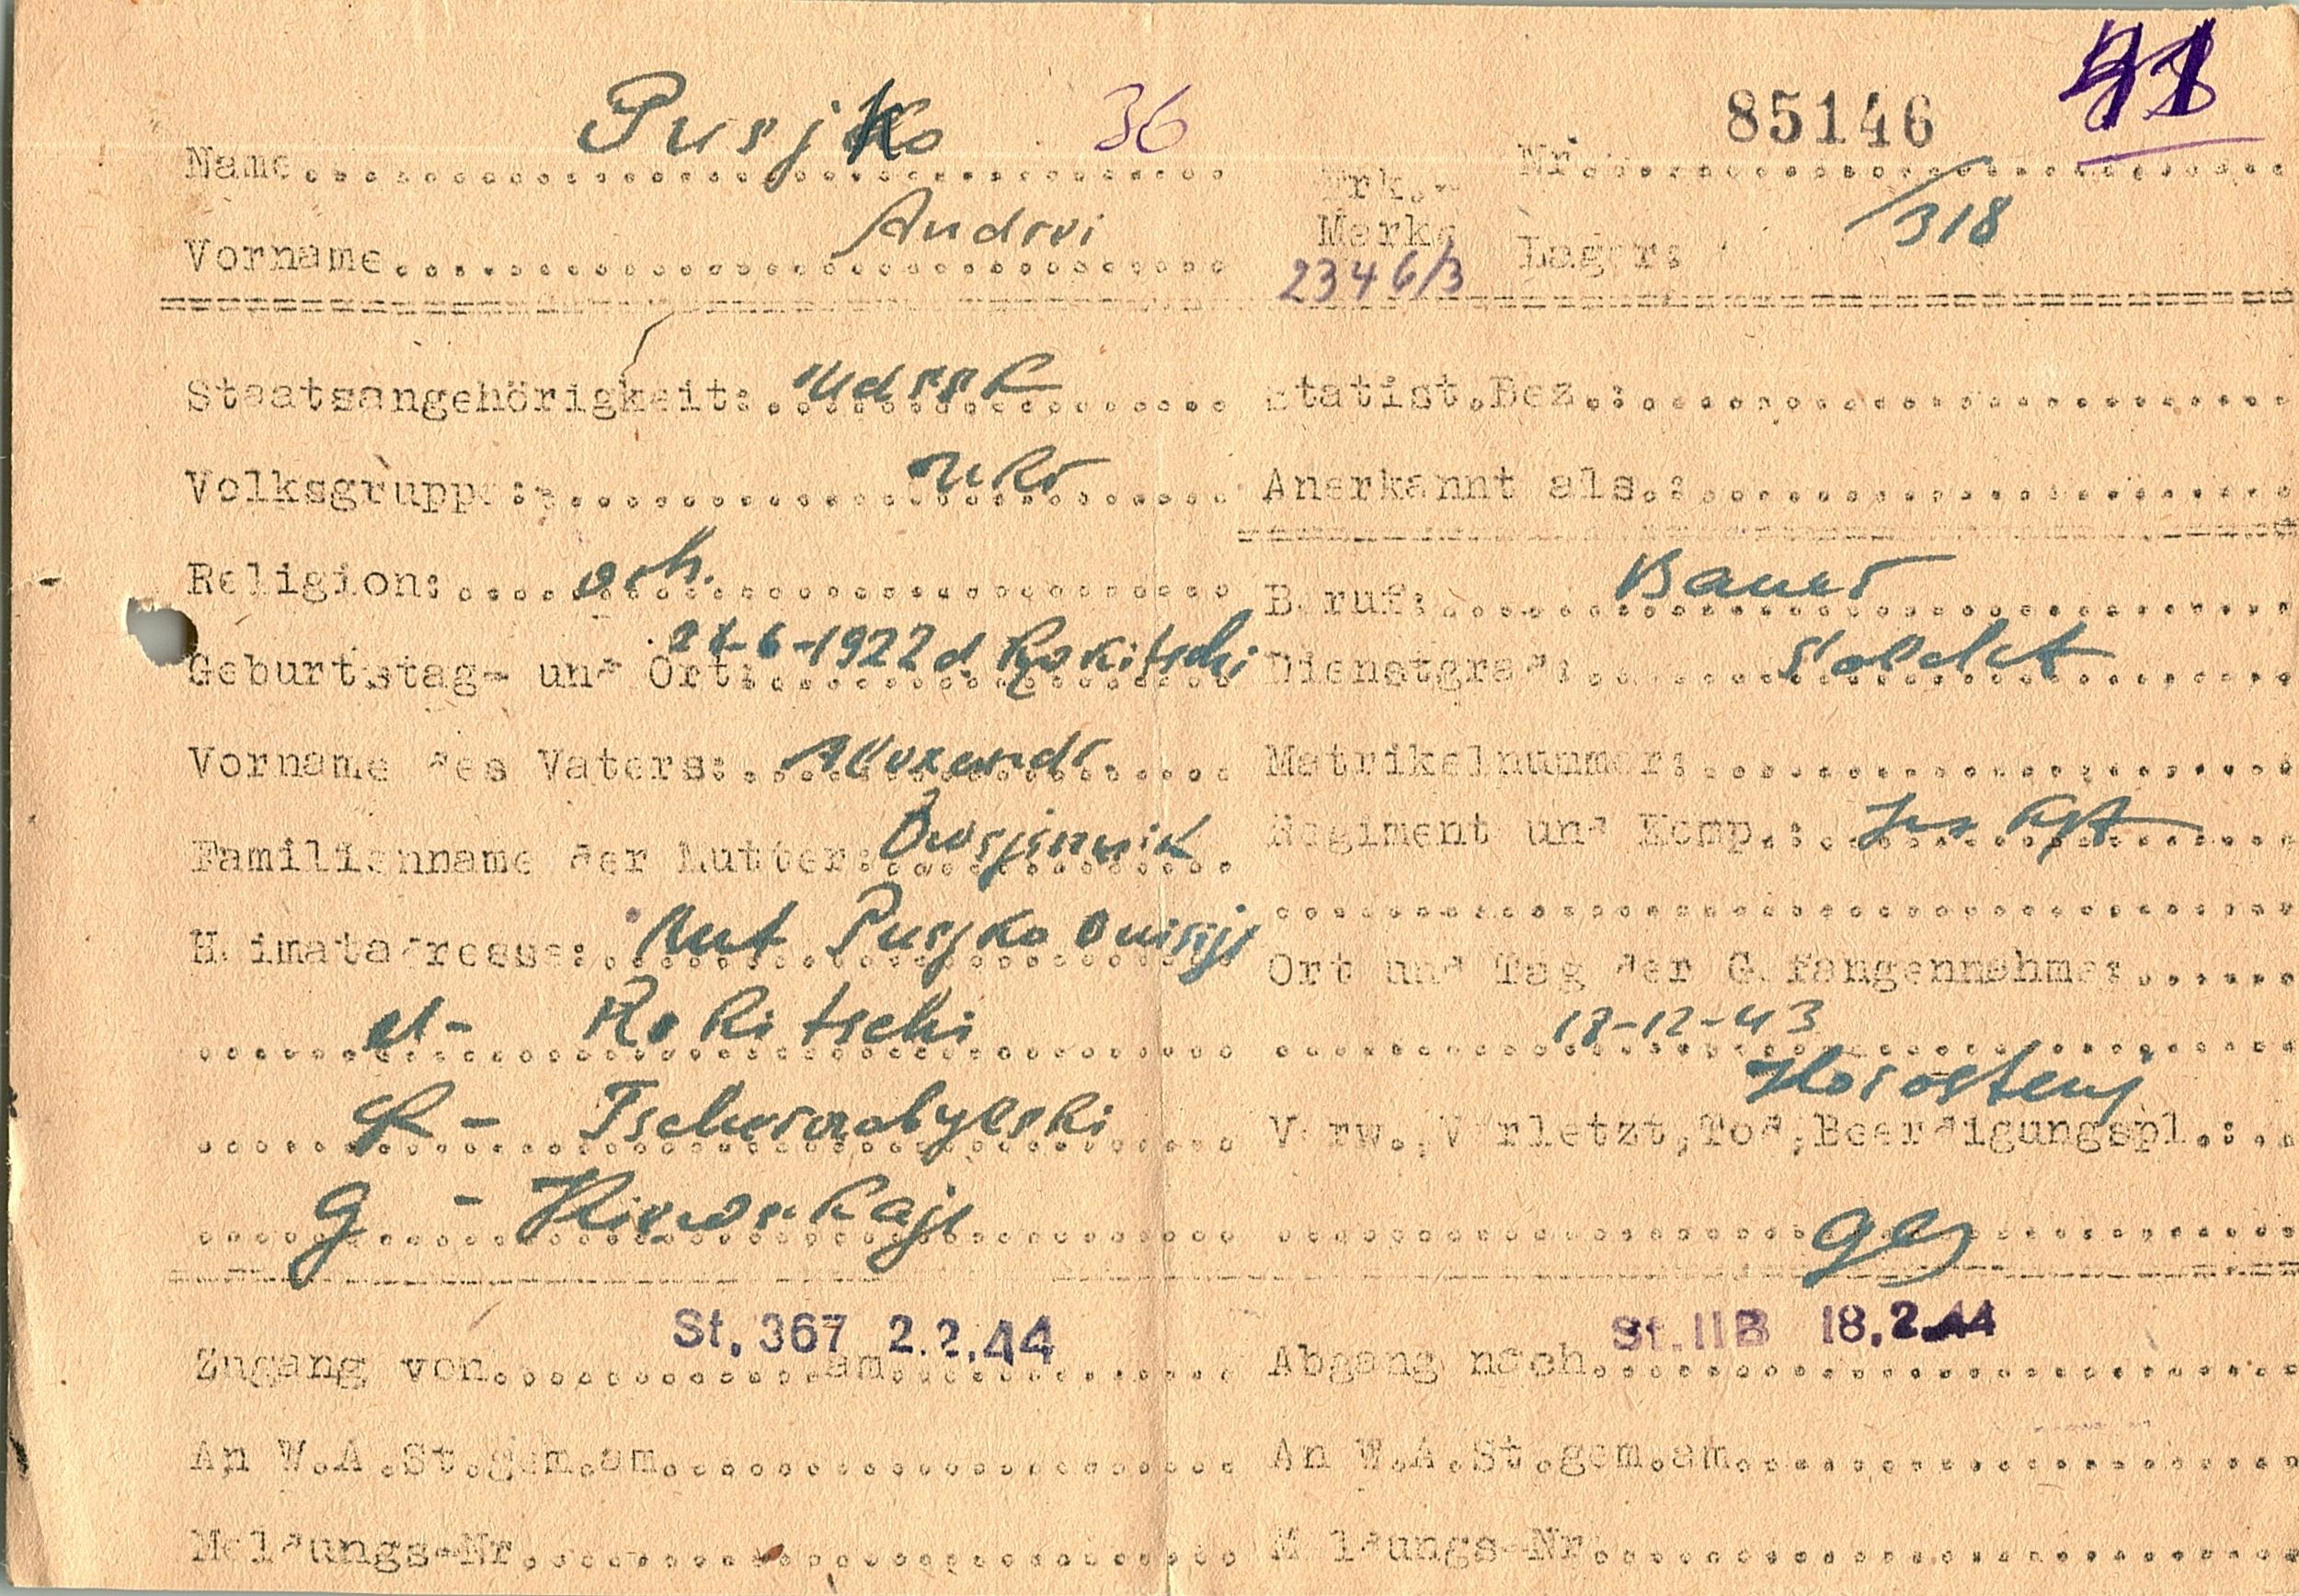 41
Pusjko 36 85146
Name Nr.
Andrei Erk.- /318
Vorname Marke Lager:
2346/3
Staatsangehörigkeit: UdSSR Statist.Bez.:
Volksgruppe: ukr Anerkannt als.:
Religion: orth. Beruf: Bauer
Geburtstag- und Ort: 21-6-1922 d. Rokitschi Dienstgrad: Soldat
Vorname des Vaters: Alexandr. Matrikelnummer:
Familienname der Mutter: Regiment und Komp.:
Heimatadresse: Mut Pusjko Ort und Tag der Gefangennahme:
d- Rokitschi 18-12-43
Korostenj
R- Tschernobylski Verw., Verletzt, Tod, Beerdigungspl.:
G. - Kiewskaja ges
St. 367 2.2.44 St. II B 18.2.44
Zugang von am Abgang nach
An W.A.St.gem.am An W.A.St.gem.am
Meldungs-Nr. Meldungs-Nr